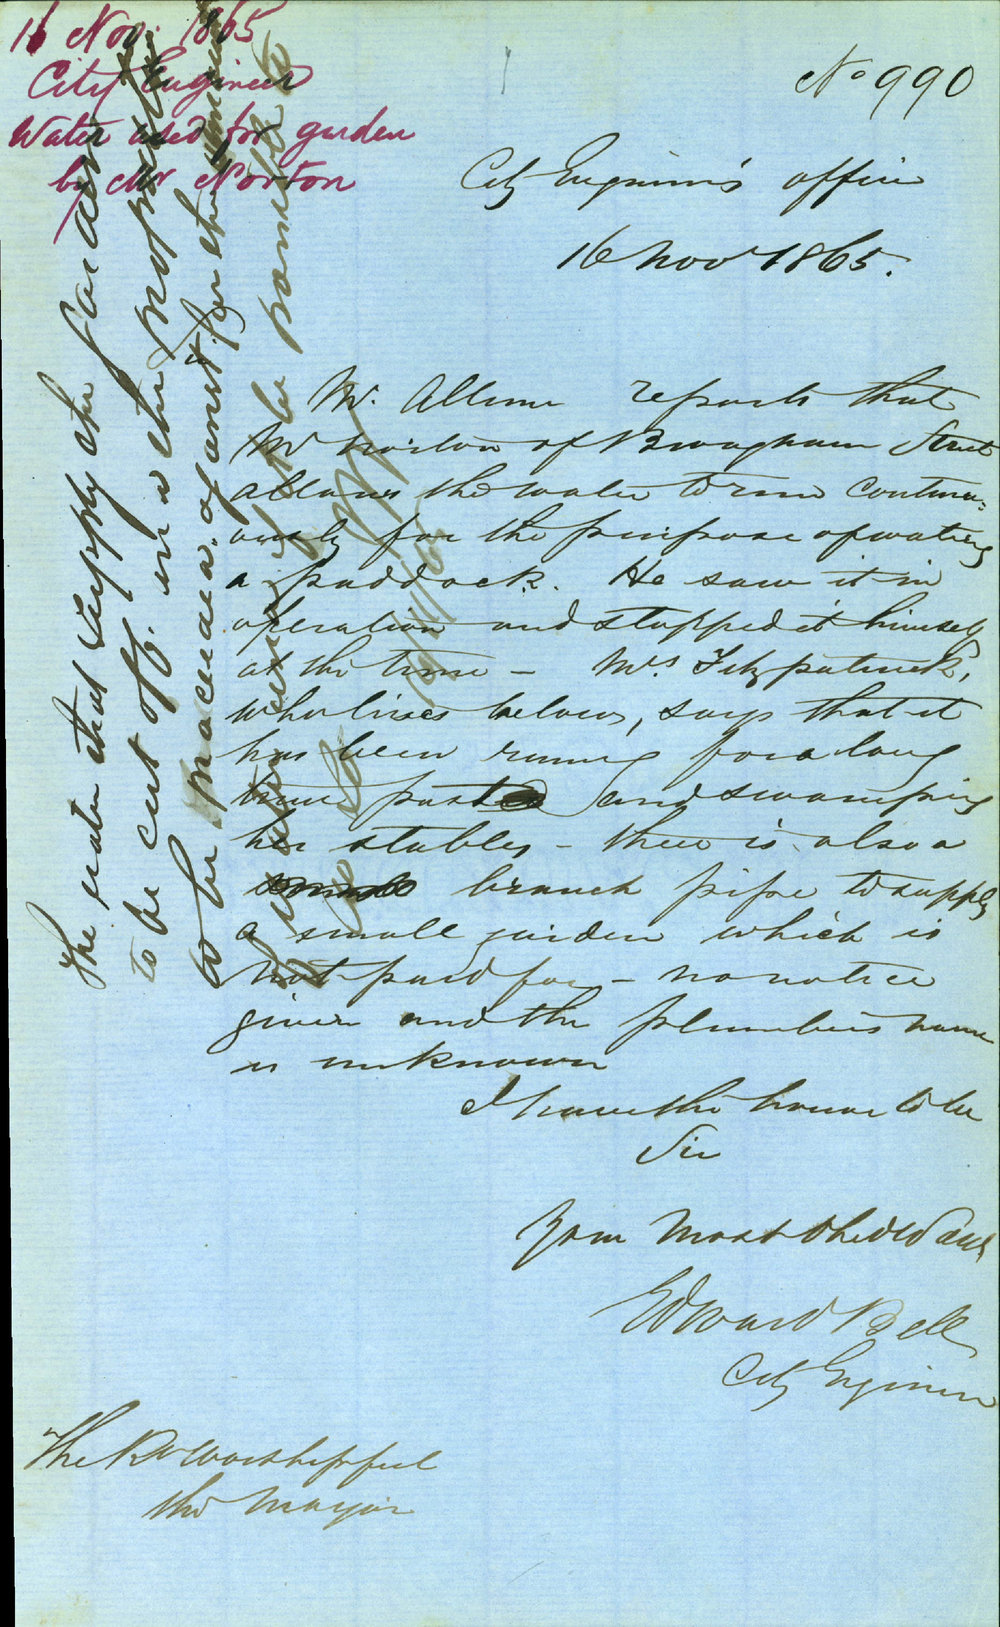 16 Nov. 1865
City Engineer
Water used for garden
by Mr Norton
No 990
City Engineer's office
16 Nov 1865.
Mr. Allerne reports that
Mr Norton of Brougham Street
allows the water to run continu=
ously for the purpose of watering
a paddock. He saw it in
operation and stopped it himself
at the time - Mrs. Fitzpatrick,
who lives below, says that it
has been runing for a long
time past and swamping
her stables - there is also a
branch pipe to supply
a small garden which is
not paid for - no notice
given and the plumbers name
is unknown
I have the honor to be
Sir
Your Most Obed Servt
Edward Bell
City Engineer
The Rt Worshipful
the Mayor
The water that supply the garden
to be cut off. and the
to be proceeded against for the